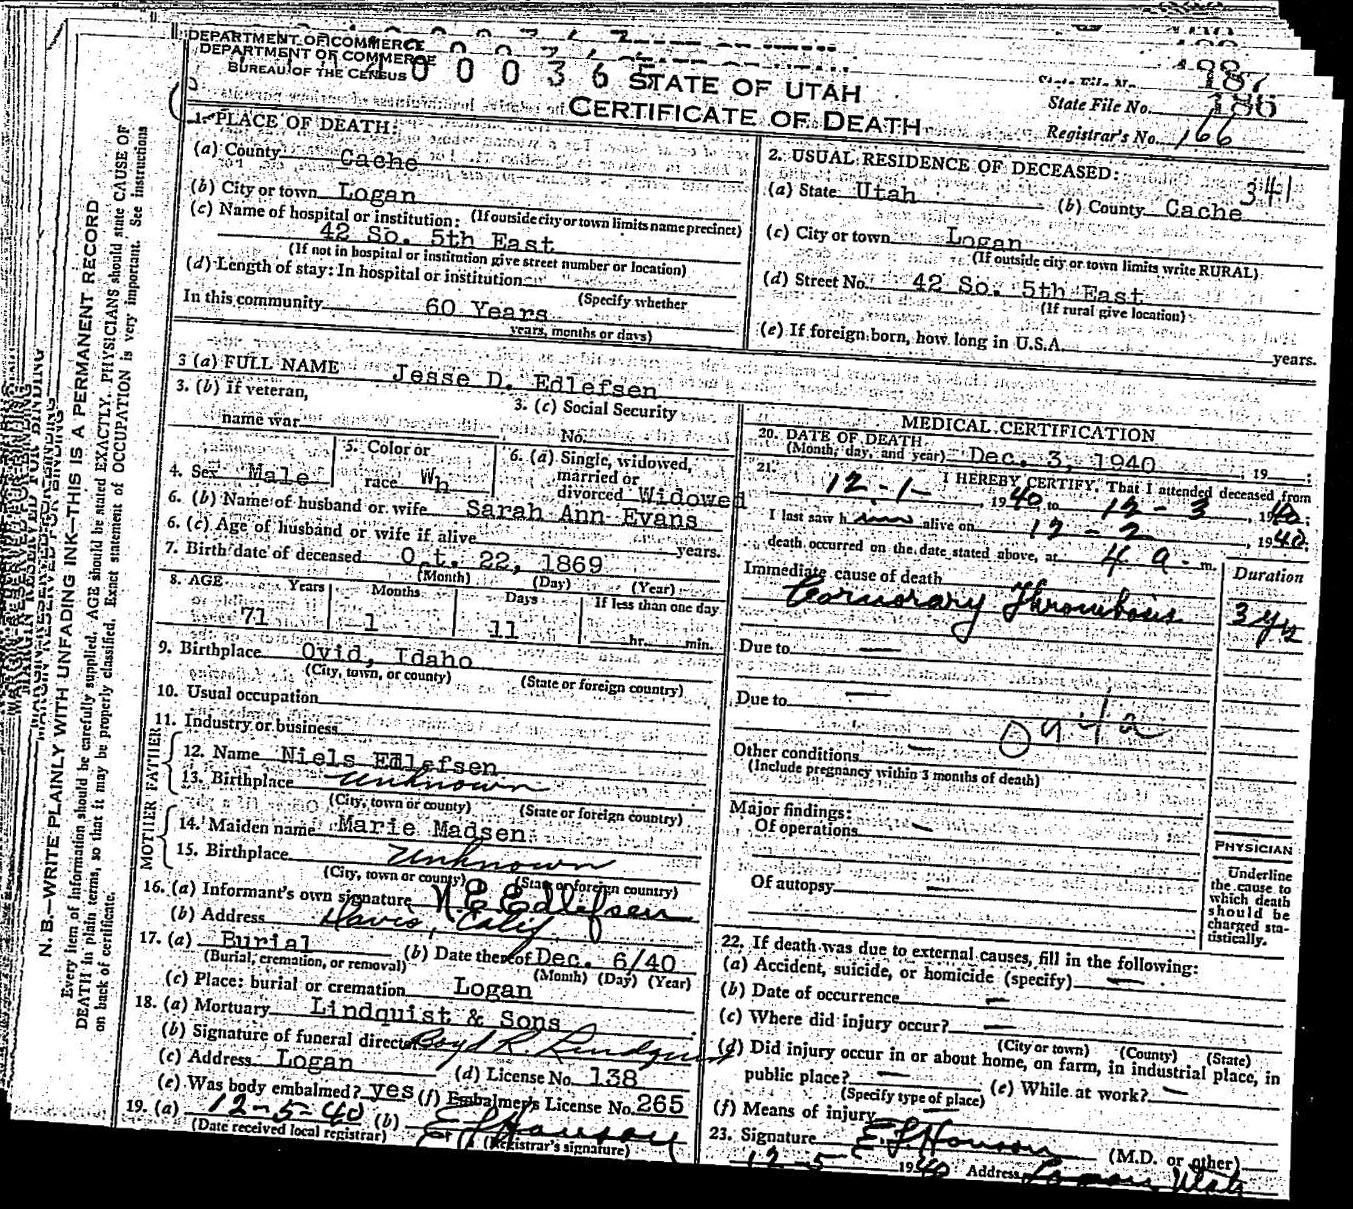 DEPARTMENT OF COMMERCE
DEPARTMENT OF COMMERCE
BUREAU OF THE CENSUS
STATE OF UTAH
CERTIFICATE OF DEATH
State File No. 186
Registrar's No. 166
1. PLACE OF DEATH:
(a) County Cache
(b) City or town Logan
(c) Name of hospital or institution: (If outside city or town limits name precinct)
42 So. 5th East
(If not in hospital or institution give street number or location)
(d) Length of stay: In hospital or institution
(Specify whether
In this community 60 Years
years, months or days)
2. USUAL RESIDENCE OF DECEASED:
341
(a) State Utah (b) County Cache
(c) City or town Logan
(If outside city or town limits write RURAL)
(d) Street No. 42 So. 5th East
(If rural give location)
(e) If foreign born, how long in U.S.A. years.
3 (a) FULL NAME Jesse D. Edlefsen
3. (b) If veteran,
name war
3. (c) Social Security
No.
4. Sex Male
5. Color or
race Wh
6. (a) Single, widowed,
married or
divorced Widowed
6. (b) Name of husband or wife Sarah Ann Evans
6. (c) Age of husband or wife if alive years.
7. Birth date of deceased O t. 22, 1869
(Month) (Day) (Year)
8. AGE Years Months Days If less than one day
71 1 11 hr. min.
9. Birthplace Ovid, Idaho
(City, town, or county) (State or foreign country)
10. Usual occupation
11. Industry or business
FATHER
12. Name Niels Edlefsen
13. Birthplace Unknown
(City, town or county) (State or foreign country)
MOTHER
14. Maiden name Marie Madsen
15. Birthplace Unknown
(City, town or county) (State or foreign country)
16. (a) Informant's own signature N. E. Edlefsen
(b) Address Davis, Calif
17. (a) Burial (b) Date thereof Dec. 6/40
(Burial, cremation, or removal) (Month) (Day) (Year)
(c) Place: burial or cremation Logan
18. (a) Mortuary Lindquist & Sons
(b) Signature of funeral director Boyd R. Lindquist
(c) Address Logan (d) License No. 138
(e) Was body embalmed? yes (f) Embalmer's License No. 265
19. (a) 12-5-40 (b) E L Hanson
(Date received local registrar) (Registrar's signature)
MEDICAL CERTIFICATION
20. DATE OF DEATH
(Month, day, and year) Dec. 3, 1940, 19 ;
21. I HEREBY CERTIFY, That I attended deceased from
12-1- 1940 to 12-3, 1940;
I last saw him alive on 12-2 1940;
death occurred on the date stated above, at 4 a m.
Immediate cause of death
Duration
Cornorary Thrombosis 3 yrs
Due to —
Due to —
94a
Other conditions —
(Include pregnancy within 3 months of death)
Major findings:
Of operations —
Of autopsy —
PHYSICIAN
Underline
the cause to
which death
should be
charged sta-
tistically.
22. If death was due to external causes, fill in the following:
(a) Accident, suicide, or homicide (specify) —
(b) Date of occurrence —
(c) Where did injury occur? —
(City or town) (County) (State)
(d) Did injury occur in or about home, on farm, in industrial place, in
public place? — (e) While at work? —
(Specify type of place)
(f) Means of injury —
23. Signature E L Hanson (M.D. or other)
12-5 1940 Address Logan Utah
MARGIN RESERVED FOR BINDING
N. B.—WRITE PLAINLY WITH UNFADING INK—THIS IS A PERMANENT RECORD
Every item of information should be carefully supplied. AGE should be stated EXACTLY. PHYSICIANS should state CAUSE OF
DEATH in plain terms, so that it may be properly classified. Exact statement of OCCUPATION is very important. See instructions
on back of certificate.